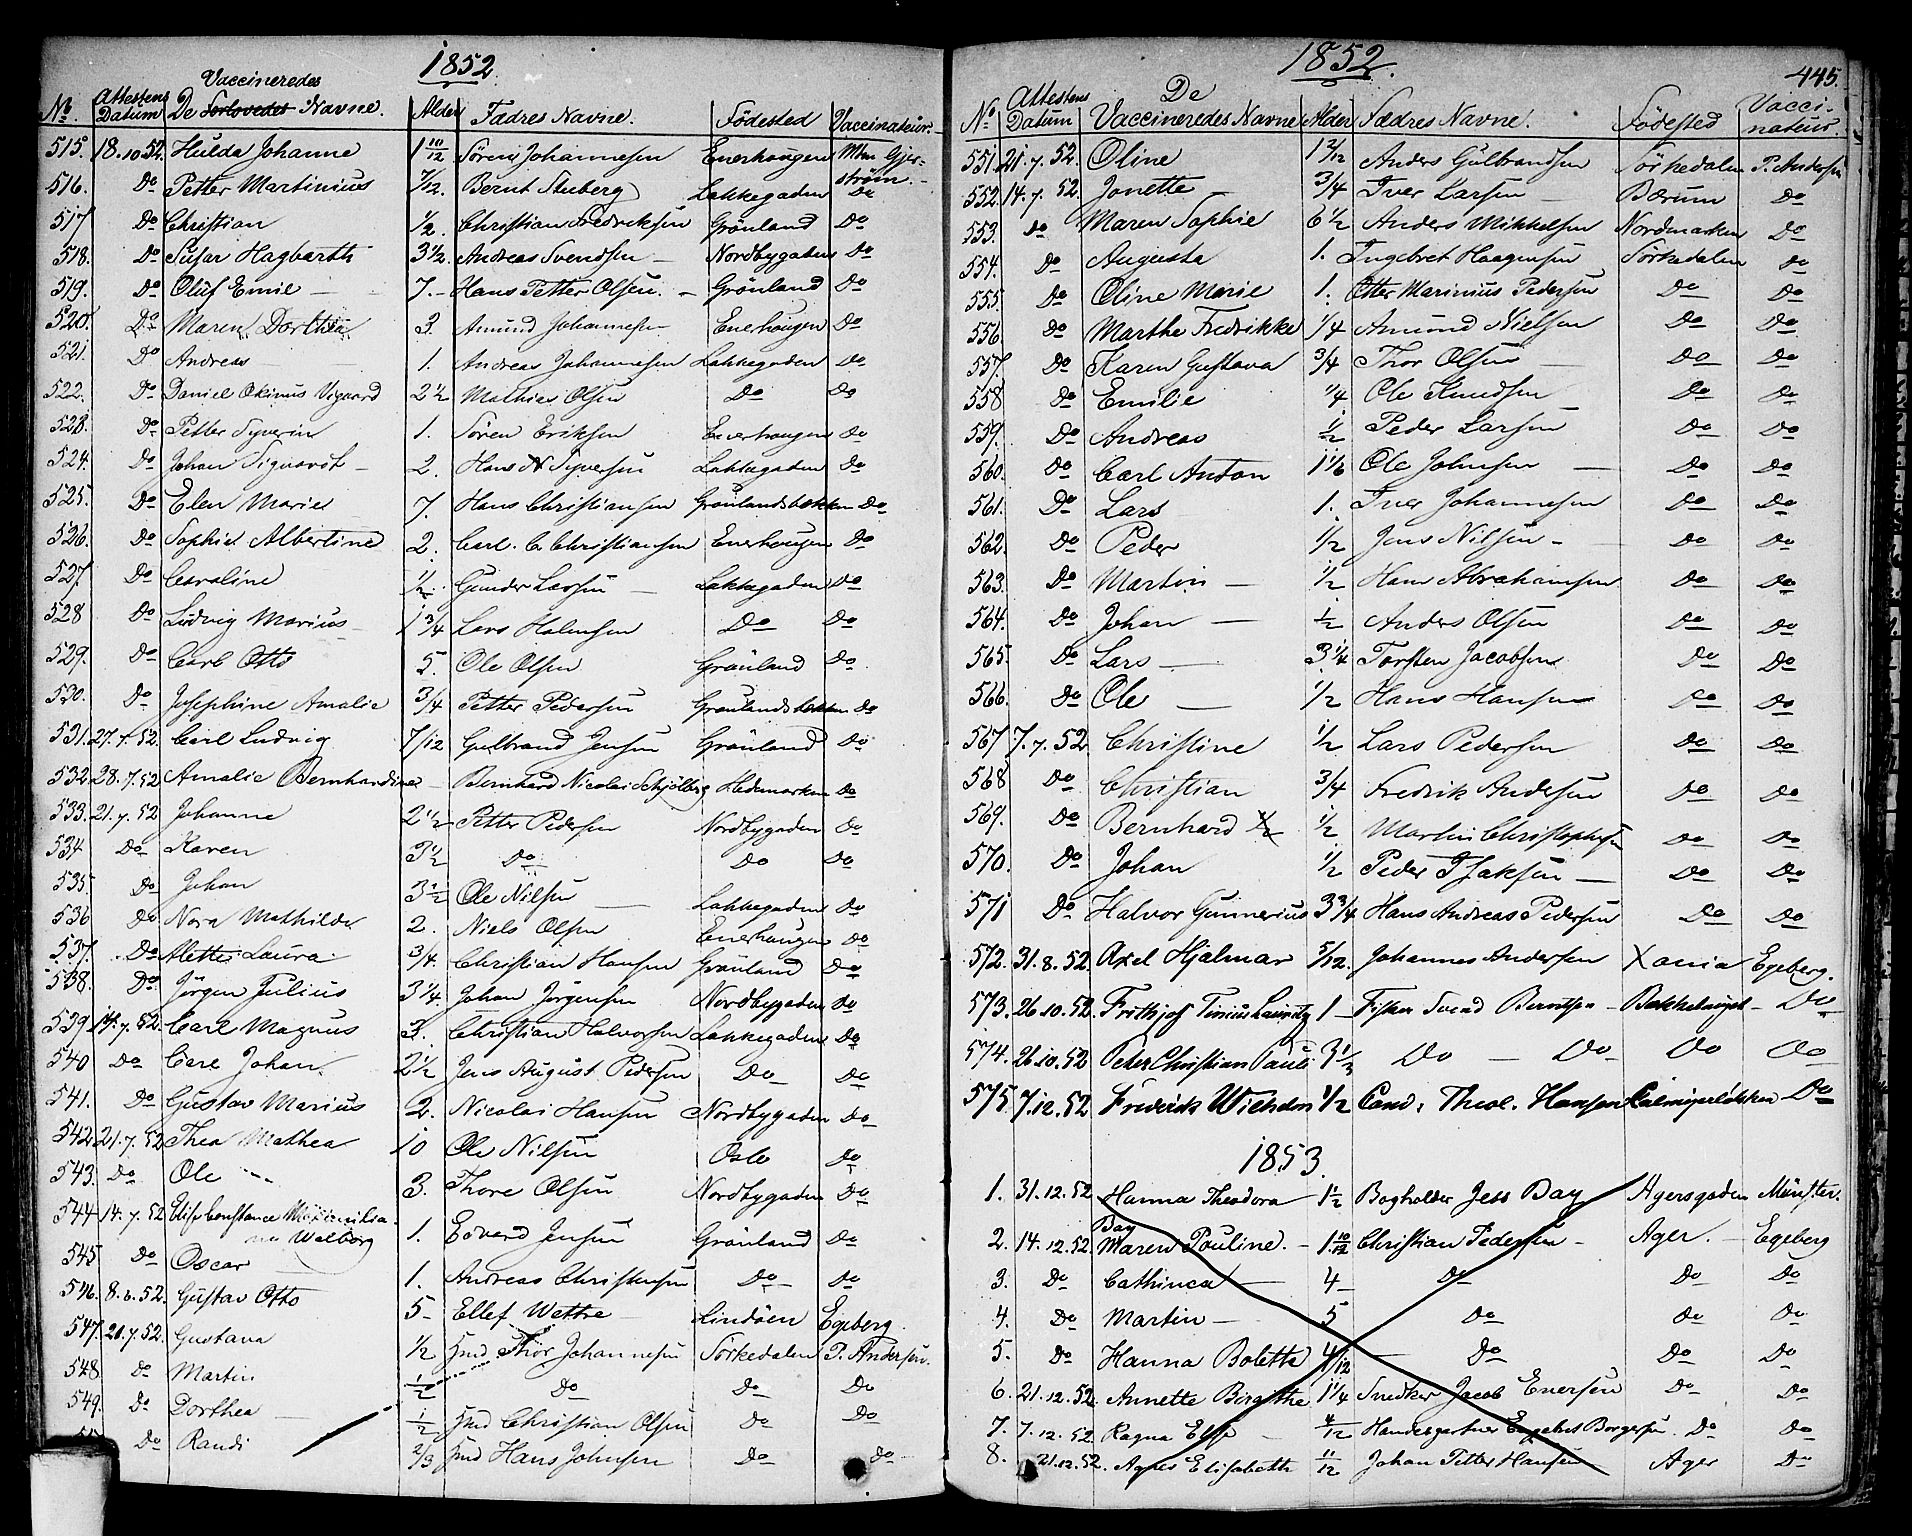 1852
Vaccineredes
No. Attestens Datum De Forlovedes Navne. Alder Fædres Navne. Födested Vaccinateur.
515. 18.10.52. Hulda Johanne 1 10/12 Sören Johannesen Enerhougen Mtm Gjer-
ström.
516. Do Petter Martinius 7/12. Bernt Stuberg Lakkegaden Do
517 Do Christian 1/2. Christian Fredriksen Grönland Do
518. Do Hagbarth 3 1/2. Andreas Svendsen Nordbygaden Do
519. Do Oluf Emil 7. Hans Petter Olsen Grönland Do
520. Do Maren Dorthea 3. Amund Johannesen Enerhougen Do
521. Do Andreas 1. Andreas Johannesen Lakkegaden Do
522. Do Daniel Okinus Vigaard 2 1/2 Mathias Olsen Do Do
523. Do Petter Syverin 1. Sören Eriksen Enerhougen Do
524. Do Johan Sigvardt 2. Hans N Syversen Lakkegaden Do
525. Do Elen Marie 7. Hans Christiansen Grönlandsbækken Do
526. Do Sophie Albertine 2. Carl. C. Christiansen Enerhougen Do
527 Do Caroline 1/2. Gunder Larsen Lakkegaden Do
528 Do Ludvig Marius 1 3/4 Lars Halvorsen Do Do
529. Do Carl Otto 5. Ole Olsen Grönland Do
530. Do Josephine Amalie 3/4 Petter Pedersen Grönlandsbækken Do
531. 27.7.52. Carl Ludvig 7/12 Gulbrand Jensen Grönland Do
532 28.7.52 Amalie Bernhardine Bernhard Nicolai Schjölberg Hedemarken Do
533. 21.7.52 Johanne 2 1/2 Petter Pedersen Nordbygaden Do
534 Do Karen 3 1/2 Do Do Do
535. Do Johan 3 1/2 Ole Nilsen Lakkegaden Do
536 Do Nora Mathilde 2. Niels Olsen Enerhaugen Do
537. Do Alette Laura 3/4. Christian Hansen Grönland Do
538. Do Jörgen Julius 3 1/4. Johan Jörgensen Nordbygaden Do
539 14.7.52. Carl Magnus 3. Christian Halvorsen Lakkegaden Do
540 Do Carl Johan 2 1/2 Jens August Pedersen Do Do
541. Do Gustav Marius 2. Nicolai Hansen Nordbygaden Do
542 21.7.52 Thea Mathea 10 Ole Nilsen Oslo Do
543. Do Ole 3. Thore Olsen Nordbygaden Do
544 14.7.52 Elise Constance Maximilia-
na Walborg 1. Edvard Jensen Grönland Do
545 Do Oscar 1. Andreas Christensen Do Do
546. 8.6.52. Gustav Otto 5 Ellef Wettre Lindöen Egeberg.
547. 21.7.52. Gustava 1/2 Hmd Thor Johannesen Sörkedalen P. Andersen.
548. Do Martin 1/2 Do Do Do
549. Do Dorthea 1/2 Hmd Christian Olsen Do Do
Do Randi 2/3 Hmd Hans Johnsen Do Do
1852. 445.
No Attestens Datum De Vaccineredes Navne Alder Fædres Navne. Födested Vacci-
nateur.
551. 21.7.52. Oline 1 2/12 Anders Gulbrandsen Sörkedalen P. Andersen
552. 14.7.52 Jonette 3/4 Iver Larsen Bærum Do
553. Do Maren Sophie 6 1/2 Anders Mikkelsen Nordmarken Do
554. Do Augusta 1. Ingebret Haagensen Sörkedalen Do
555. Do Oline Marie 1. Otter Marinius Pedersen Do Do
556 Do Marthe Fredrikke 1/4 Amund Nielsen Do Do
557. Do Karen Gustava 3/4 Thor Olsen Do Do
558 Do Emilie 1/4 Ole Knudsen Do Do
559. Do Andreas 1/2 Peder Larsen Do Do
560. Do Carl Anton 1 1/6 Ole Johnsen Do Do
561. Do Lars 1. Iver Johannesen Do Do
562. Do Peder 1/2 Jens Nilsen Do Do
563. Do Martin 1/2 Hans Abrahamsen Do Do
564. Do Johan 1/2 Anders Olsen Do Do
565. Do Lars 3 1/4 Torsten Jacobsen Do Do
566. Do Ole 1/2 Hans Hansen Do Do
567 7.7.52 Christine 1/2 Lars Pedersen Do Do
568 Do Christian 3/4 Fredrik Andersen Do Do
569. Do Bernhard 1/2 1/2 Martin Christophersen Do Do
570. Do Johan 1/2 Peder Isaksen Do Do
571 Do Halvor Gunnerius 3 3/4 Hans Andreas Pedersen Do Do
572. 31.8.52. Axel Hjalmar 5/12. Johannes Andersen Xania Egeberg.
573. 26.10.52. Frithjof Tinius Lauritz 1 Fisker Svend Berntsen Bekkelaget Do
574. 26.10.52 Peter Christian Pauli 3 1/2 Do Do Do Do
575. 7.12.52 Fredrik Wilhelm 1/2 Cand. Theol. Hansen Calmeyerlökken Do
1853.
1. 31.12.52 Hanna Theodora 1 1/2 Bogholder Jess Bay Agersgaden Münster.
Bay
2. 14.12.52. Maren Pouline. 1 10/12 Christian Pedersen Ager. Egeberg
3. Do Cathinca 4 Do Do Do
4. Do Martin 5 Do Do Do
5. Do Hanna Bolette 4/12 Do Do Do
6. 21.12.52. Annette Birgithe 1 1/4 Snedker Jacob Enersen Do Do
7. 7.12.52 Ragna Elise 4/12 Handelsgartner Engebret Borgersen. Do Do
8. 21.12.52. Agnes Elisabeth 11/12 Johan Petter Hansen Ager Do